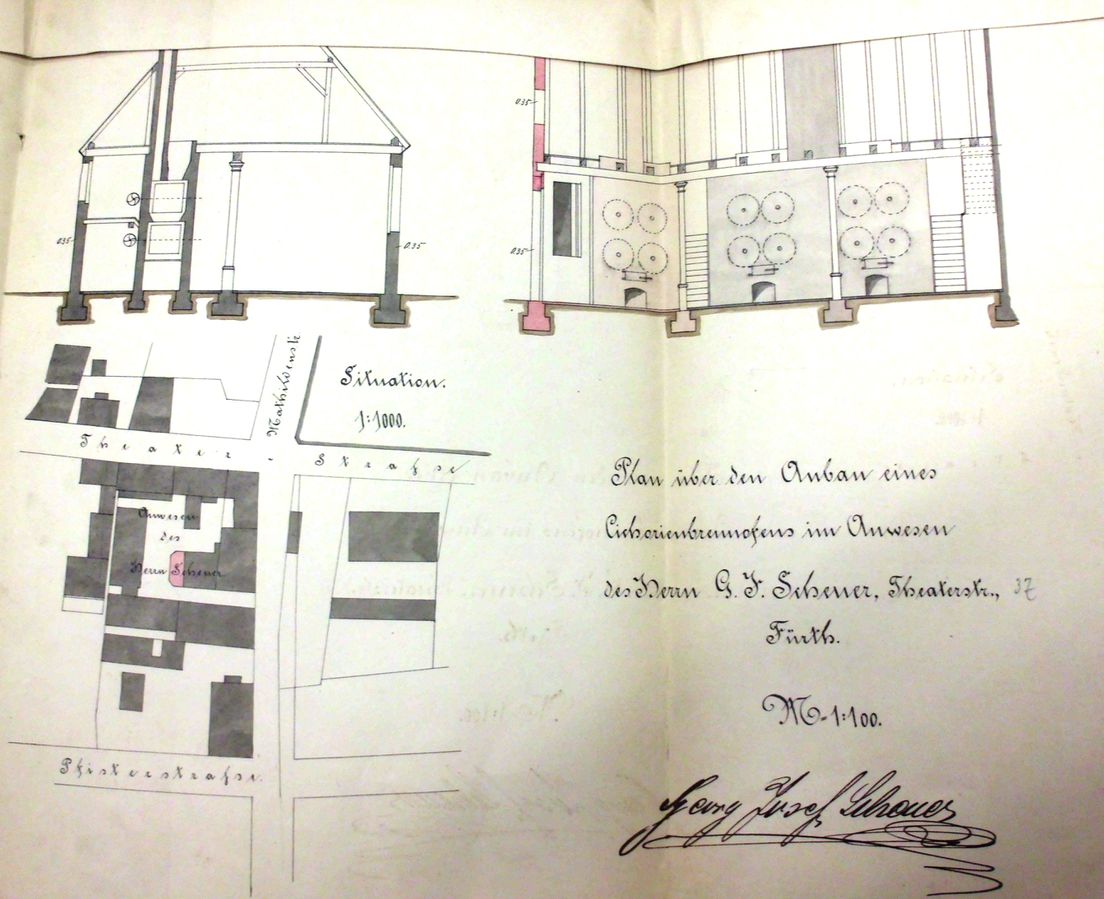 0.35
0.35
0.35
0.35
Situation.
1:1000.
Mathildenstr.
Theater-
Strasse
Anwesen
des
Herrn Scheuer
Pfisterstrasse.
Plan über den Anbau eines
Cichorienbrennofens im Anwesen
des Herrn G. J. Scheuer, Theaterstr., 37
Fürth.
M-1:100.
Georg Josef Scheuer